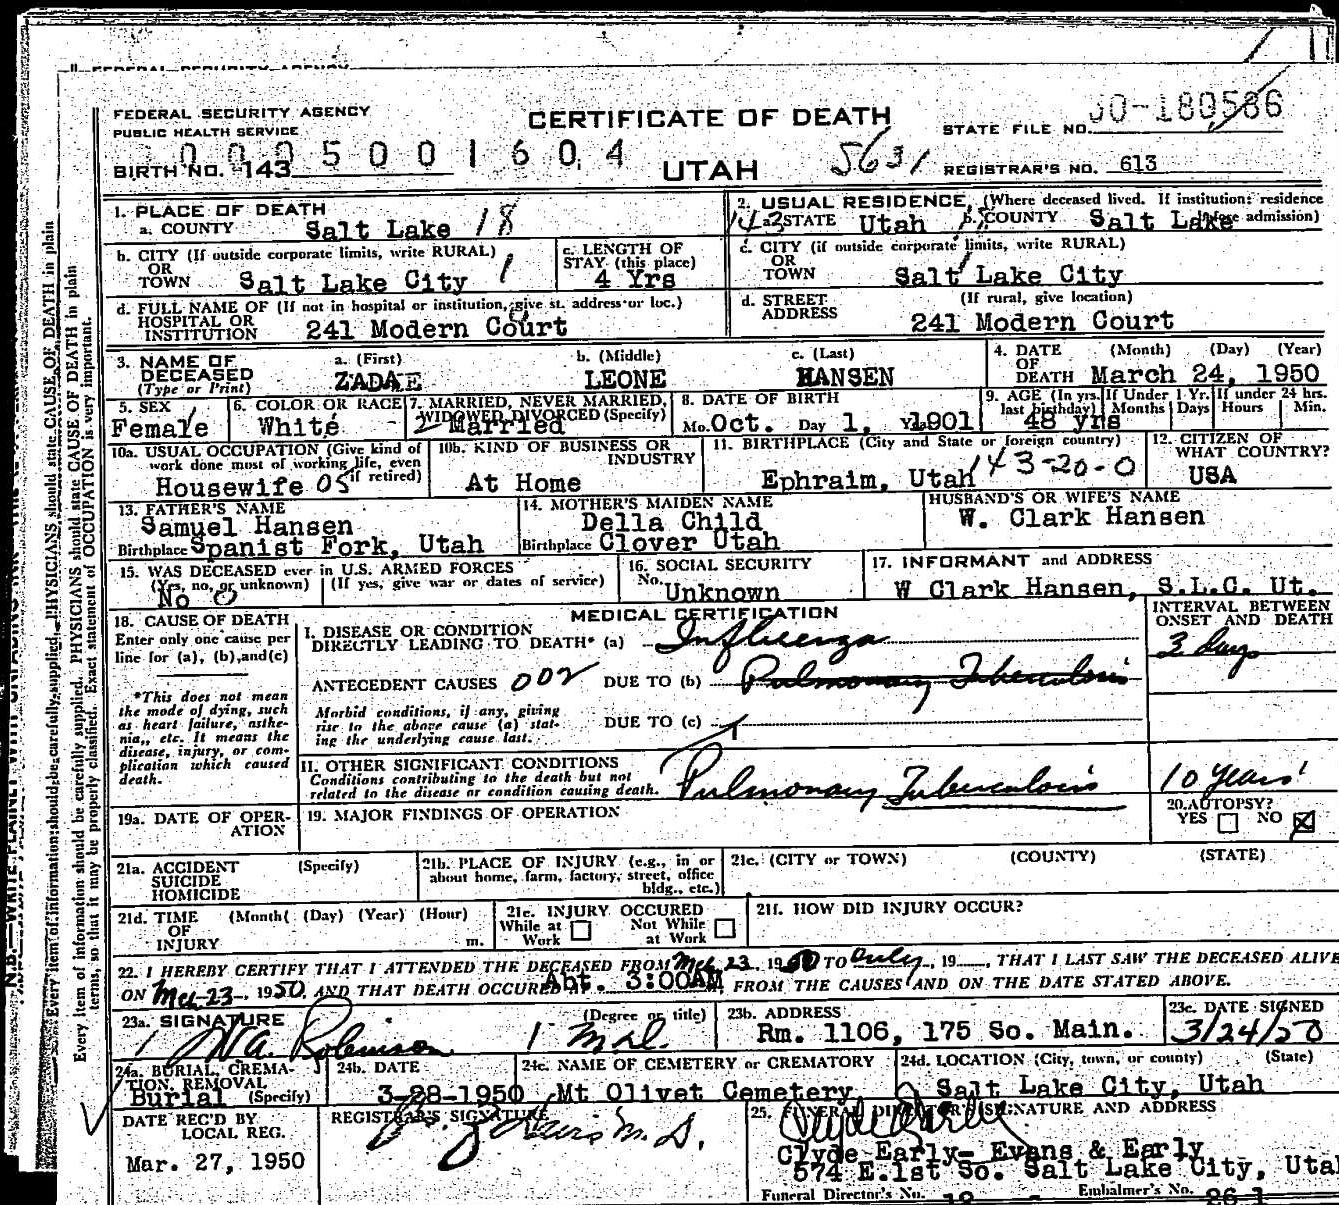 FEDERAL SECURITY AGENCY
PUBLIC HEALTH SERVICE
CERTIFICATE OF DEATH
STATE FILE NO. 50-180586
0005001604
BIRTH NO. 143
UTAH 5631
REGISTRAR'S NO. 613
1. PLACE OF DEATH
a. COUNTY Salt Lake 18
2. USUAL RESIDENCE (Where deceased lived. If institution: residence before admission)
143 a. STATE Utah b. COUNTY Salt Lake
b. CITY (If outside corporate limits, write RURAL)
OR
TOWN Salt Lake City 1
c. LENGTH OF
STAY (this place)
4 Yrs
c. CITY (if outside corporate limits, write RURAL)
OR
TOWN Salt Lake City
d. FULL NAME OF (If not in hospital or institution, give st. address or loc.)
HOSPITAL OR
INSTITUTION 241 Modern Court
d. STREET (If rural, give location)
ADDRESS
241 Modern Court
3. NAME OF
DECEASED
(Type or Print)
a. (First) b. (Middle) c. (Last)
ZADAE LEONE HANSEN
4. DATE (Month) (Day) (Year)
OF
DEATH March 24, 1950
5. SEX
Female 1
6. COLOR OR RACE
White
7. MARRIED, NEVER MARRIED,
WIDOWED DIVORCED (Specify)
2 Married
8. DATE OF BIRTH
Mo. Oct. Day 1, Yr. 1901
9. AGE (In yrs. last birthday) 48 yrs
If Under 1 Yr. Months Days
If under 24 hrs. Hours Min.
10a. USUAL OCCUPATION (Give kind of
work done most of working life, even
if retired)
Housewife 05
10b. KIND OF BUSINESS OR
INDUSTRY
At Home
11. BIRTHPLACE (City and State or foreign country)
Ephraim, Utah 143-20-0
12. CITIZEN OF
WHAT COUNTRY?
USA
13. FATHER'S NAME
Samuel Hansen
Birthplace Spanist Fork, Utah
14. MOTHER'S MAIDEN NAME
Della Child
Birthplace Clover Utah
HUSBAND'S OR WIFE'S NAME
W. Clark Hansen
15. WAS DECEASED ever in U.S. ARMED FORCES
(Yes, no, or unknown) (If yes, give war or dates of service)
No 0
16. SOCIAL SECURITY
No. Unknown
17. INFORMANT and ADDRESS
W Clark Hansen, S.L.C. Ut.
18. CAUSE OF DEATH
Enter only one cause per
line for (a), (b), and (c)
*This does not mean
the mode of dying, such
as heart failure, asthe-
nia, etc. It means the
disease, injury, or com-
plication which caused
death.
MEDICAL CERTIFICATION
INTERVAL BETWEEN
ONSET AND DEATH
I. DISEASE OR CONDITION
DIRECTLY LEADING TO DEATH* (a) Influenza 3 days
ANTECEDENT CAUSES 002 DUE TO (b) Pulmonary Tuberculosis
Morbid conditions, if any, giving
rise to the above cause (a) stat-
ing the underlying cause last.
DUE TO (c)
II. OTHER SIGNIFICANT CONDITIONS
Conditions contributing to the death but not
related to the disease or condition causing death.
Pulmonary Tuberculosis 10 years
19a. DATE OF OPER-
ATION
19. MAJOR FINDINGS OF OPERATION
20. AUTOPSY?
YES NO X
21a. ACCIDENT (Specify)
SUICIDE
HOMICIDE
21b. PLACE OF INJURY (e.g., in or
about home, farm, factory, street, office
bldg., etc.)
21c. (CITY or TOWN) (COUNTY) (STATE)
21d. TIME (Month) (Day) (Year) (Hour)
OF
INJURY m.
21e. INJURY OCCURED
While at Work Not While at Work
21f. HOW DID INJURY OCCUR?
22. I HEREBY CERTIFY THAT I ATTENDED THE DECEASED FROM Mch 23, 1950 TO only, 19 , THAT I LAST SAW THE DECEASED ALIVE
ON Mch 23, 1950, AND THAT DEATH OCCURED AT Abt. 3:00AM FROM THE CAUSES AND ON THE DATE STATED ABOVE.
23a. SIGNATURE (Degree or title)
Robinson M.D.
23b. ADDRESS
Rm. 1106, 175 So. Main.
23c. DATE SIGNED
3/24/50
24a. BURIAL, CREMA-
TION, REMOVAL
Burial (Specify)
24b. DATE
3-28-1950
24c. NAME OF CEMETERY or CREMATORY
Mt Olivet Cemetery
24d. LOCATION (City, town, or county) (State)
Salt Lake City, Utah
DATE REC'D BY
LOCAL REG.
Mar. 27, 1950
REGISTRAR'S SIGNATURE
M.D.
25. FUNERAL DIRECTOR'S SIGNATURE AND ADDRESS
Clyde Early- Evans & Early
574 E.1st So. Salt Lake City, Utah
Funeral Director's No. Embalmer's No.
Every item of information should be carefully supplied. PHYSICIANS should state CAUSE OF DEATH in plain
terms, so that it may be properly classified. Exact statement of OCCUPATION is very important.